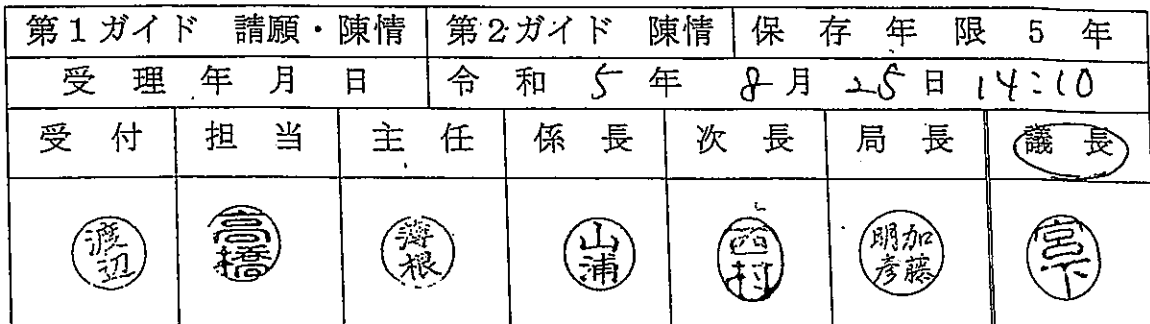 第1ガイド 請願・陳情 第2ガイド 陳情 保存年限 5年
受理年月日 令和5年 8月 25日 14:10
受付 担当 主任 係長 次長 局長 議長
渡辺 高橋 薄根 山浦 西村 加藤明彦 宮下